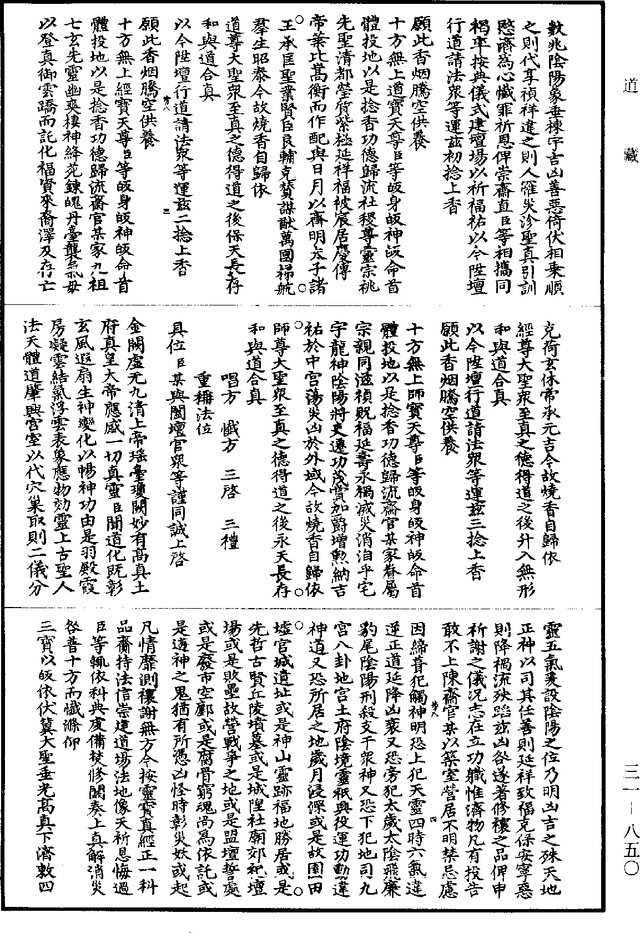 道藏
三一—八五〇
數兆陰陽象垂棟宇吉凶善惡倚伏相乗順
之則代享禎祥違之則人罹災沴聖真引訓
愍濟為心懺罪祈恩俾崇齋直臣等相攜同
褐牽按典儀式建壇場以祈福祐以今陞壇
行道請法衆等運茲初捻上香
願此香烟騰空供養
十方無上道寶天尊臣等皈身皈神皈命首
體投地以是捻香功德歸流社稷尊靈宗祧
先聖清都瑩質紫極延祥福被扆居慶傳
帝葉比萬衡而作配與日月以齊明太子諸
王承匡聖業賢臣良輔克贊謀猷萬國梯航
羣生昭泰今故燒香自歸依
道尊大聖衆至真之德得道之後保天長存
和與道合真
以今陞壇行道請法衆等運茲二捻上香
願此香烟騰空供養
十方無上經寶天尊臣等皈身皈神皈命首
體投地以是捻香功德歸流齋官某家九祖
七玄先靈幽爽棲神絳苑鍊魄丹臺襲炁毋
以登真御雲蹻而託化福資來裔澤及存亡
克荷玄休常承元吉今故燒香自歸依
經尊大聖衆至真之德得道之後升入無形
和與道合真
以今陞壇行道請法衆等運茲三捻上香
願此香烟騰空供養
十方無上師寶天尊臣等皈身皈神皈命首
體投地以是捻香功德歸流齋官某家眷屬
宗親同滋禎貺福延壽永禍滅災消泊乎宅
宇龍神陰陽將吏遷功茂賞加爵增勲納吉
祐於中宮蕩災凶於外域今故燒香自歸依
師尊大聖衆至真之德得道之後永天長存
和與道合真
唱方 懺方 三啓 三禮
重稱法位
具位臣某與闔壇官衆等謹同誠上啓
金闕虛无九清上帝瑤臺瓊闕妙有高真土
府真皇大帝應感一切真靈臣聞道化既彰
玄風遐扇生神變化以暢神功由是羽殿霞
房凝雲結氣浮雲表象應物効靈上古聖人
法天體道肇興宮室以代穴巢取則二儀分
靈五氣爰設陰陽之位乃明凶吉之殊天地
正神以司其任善則延祥致福克保安寧惡
則降禍流殃蹈茲凶咎遂著修禳之品俾申
祈謝之儀況志在立功職惟濟物凡有投告
敢不上陳齋官某以築室營居不明禁忌慮
因締葺犯觸神明恐上犯天靈四時六氣違
逆正道延降凶衰又恐旁犯太歲太陰飛廉
豹尾陰陽刑殺支干衆神又恐下犯地司九
宮八卦地宮土府陰境靈祇興役運功動違
神道又恐所居之地歲月浸深或是故園田
墟官城遺址或是神山靈跡福地勝居或是
先哲古賢丘陵墳墓或是城隍社廟郊祀壇
場或是敗壘故營戰爭之地或是盟壇誓處
或是廢市空鄽或是腐骨窮魂尚為依託或
是遺神之鬼猶有所憑凶怪時彰災妖或起
凡情靡測禳謝無方今按靈寳真經正一科
品齋持法信崇建道場法地像天祈恩悔過
臣等輒依科典虔備焚修關奏上真解消災
咎普十方而懺滌仰
三寶以皈依伏冀大聖垂光高真下濟敷四